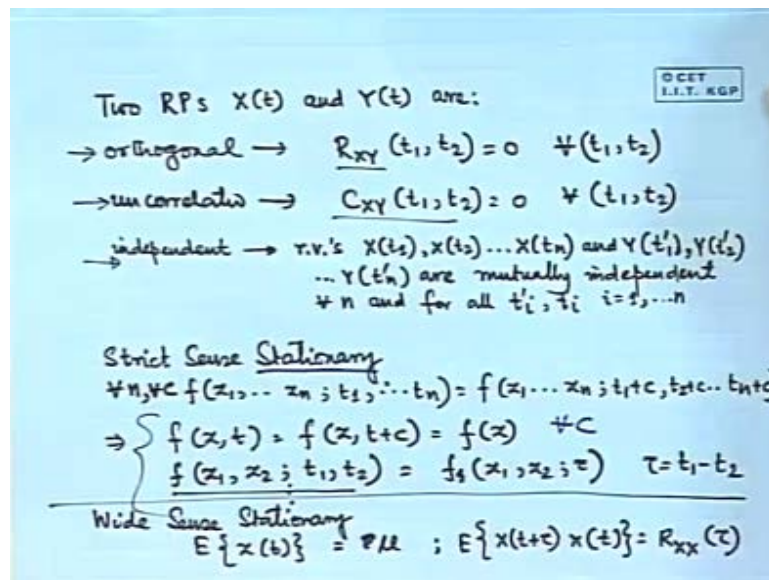 © CET
I.I.T. KGP
Two RPs X(t) and Y(t) are:
→ orthogonal → R_XY (t₁, t₂) = 0 ∀ (t₁, t₂)
→ uncorrelated → C_XY (t₁, t₂) = 0 ∀ (t₁, t₂)
→ independent → r.v.'s X(t₁), X(t₂) ... X(tₙ) and Y(t'₁), Y(t'₂)
... Y(t'ₙ) are mutually independent
∀ n and for all t'ᵢ, tᵢ i=1,...n
Strict Sense Stationary
∀n, ∀c f(x₁,... xₙ ; t₁, ... tₙ) = f(x₁ ... xₙ ; t₁+c, t₂+c.. tₙ+c
⇒ { f(x, t) = f(x, t+c) = f(x) ∀c
f(x₁, x₂ ; t₁, t₂) = f₁(x₁, x₂ ; τ) τ = t₁ - t₂
Wide Sense Stationary
E{x(t)} = μ ; E{x(t+τ) x(t)} = R_XX(τ)